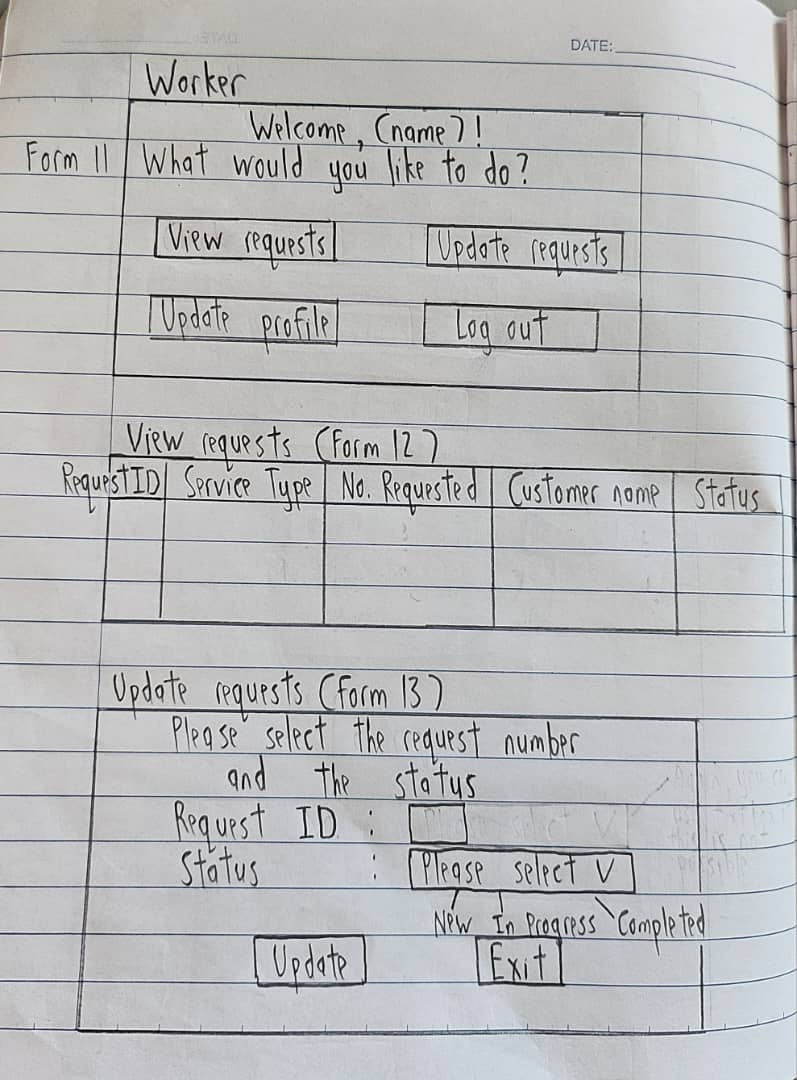 DATE:
Worker
Welcome, (name)!
Form 11 What would you like to do?
View requests Update requests
Update profile Log out
View requests (Form 12)
RequestID Service Type No. Requested Customer name Status
Update requests (Form 13)
Please select the request number
and the status
Request ID :
Status : Please select V
New In Progress Completed
Update Exit